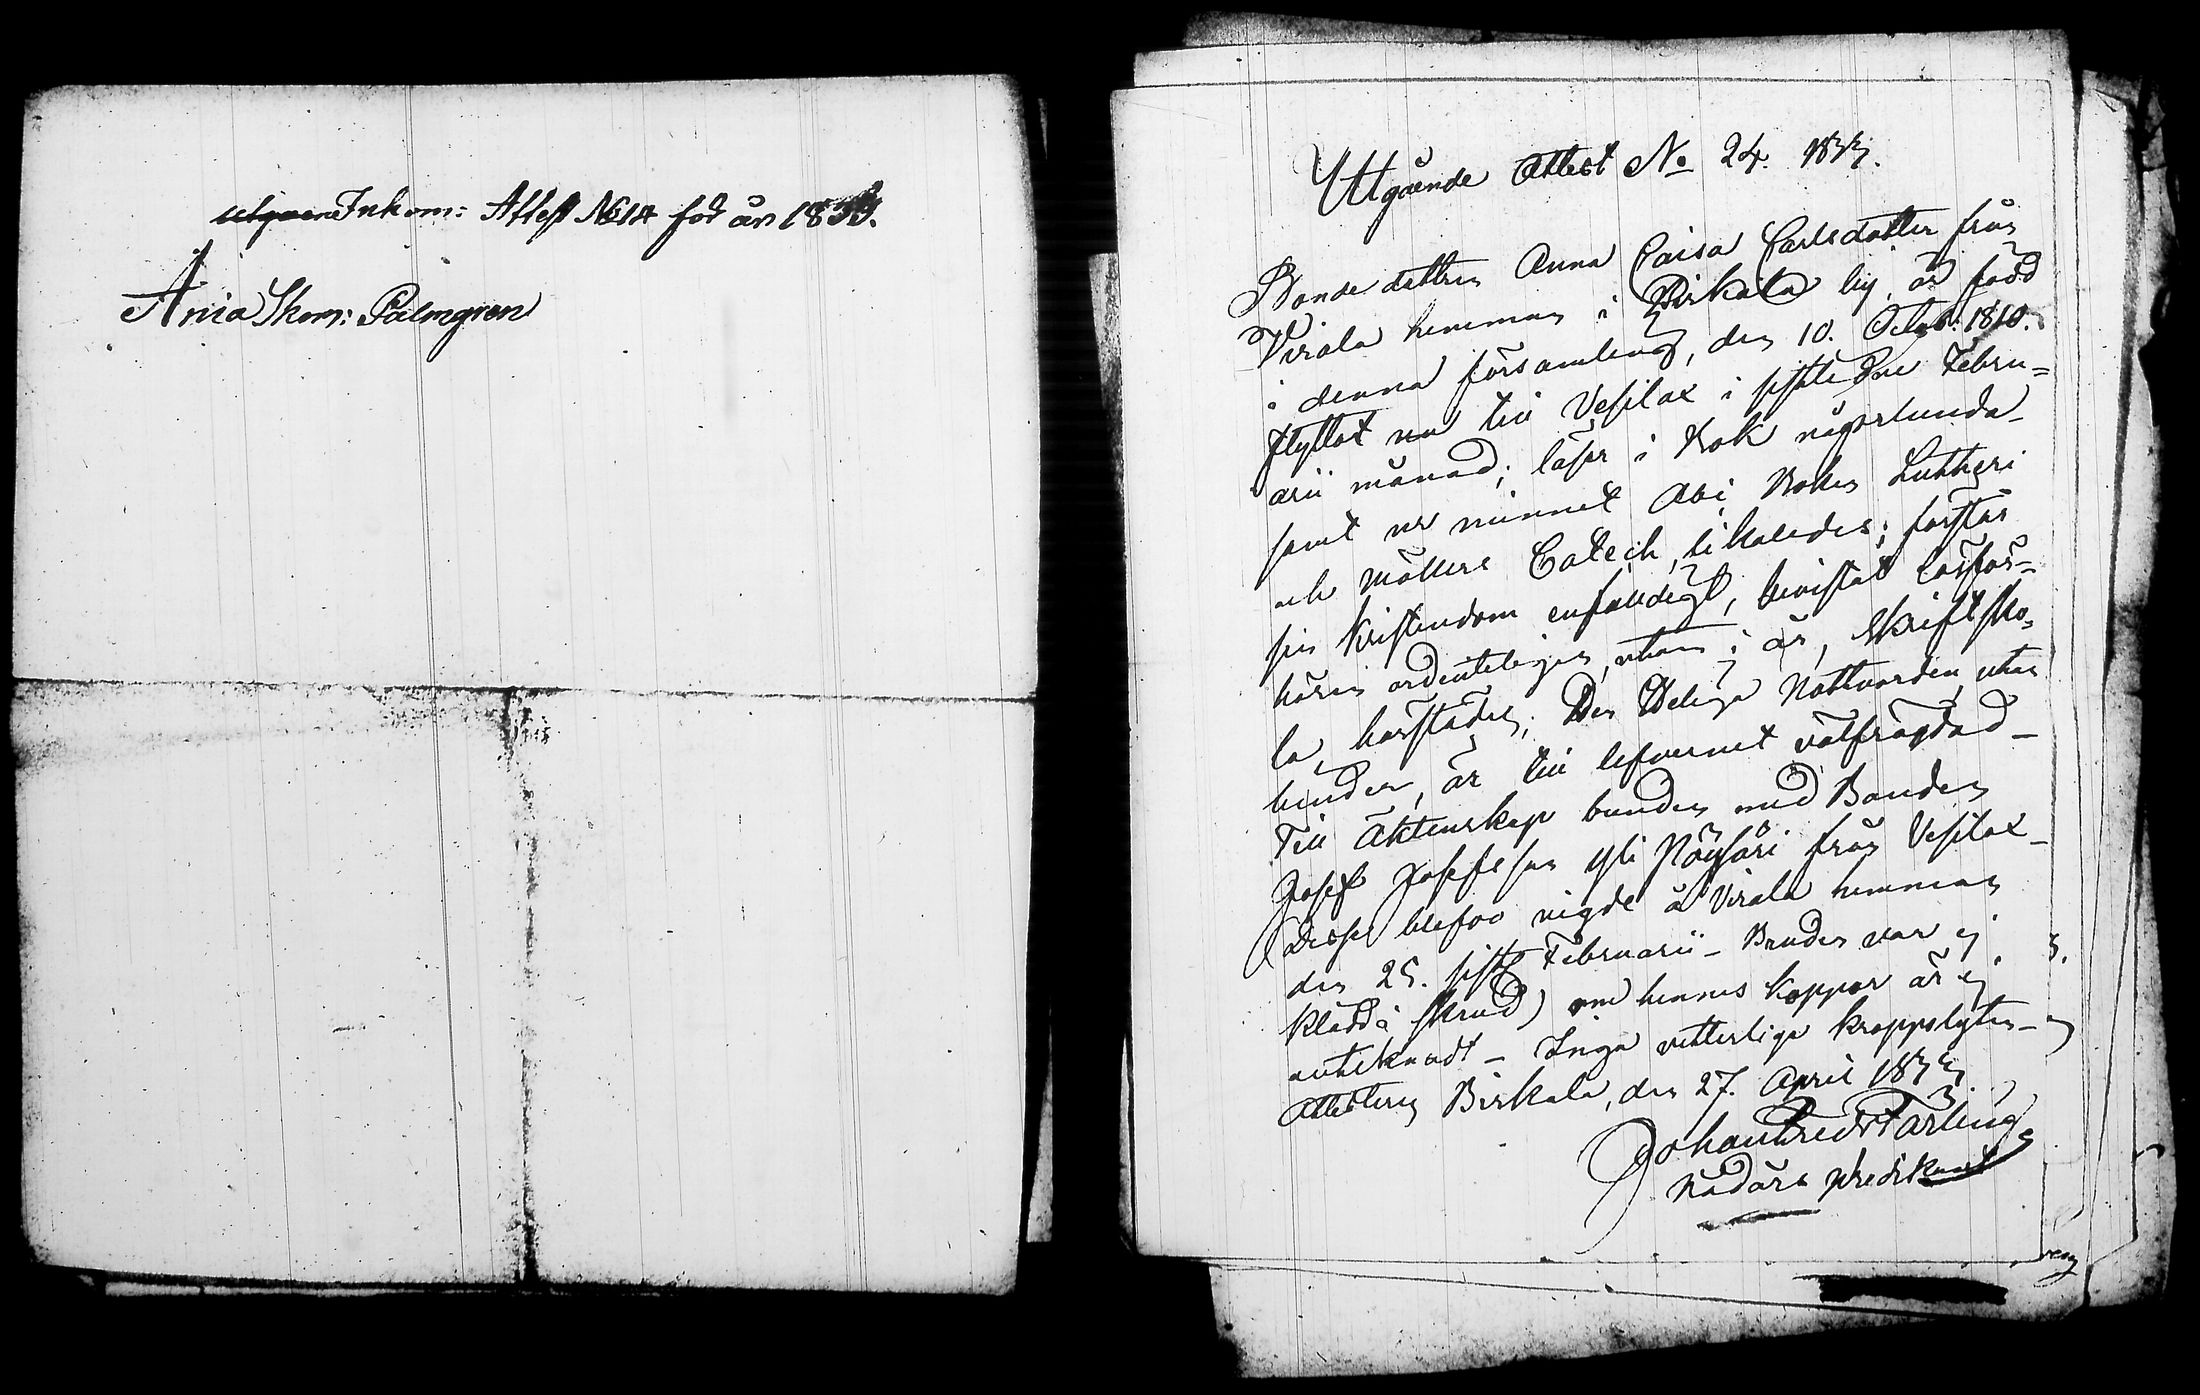 utgåene Inkom: Attest No 14 för år 1833.
Anna Thom: Palmgren
Utgående Attest No 24. 1833.
Bonde dottren Anna Caisa Carlsdotter från
Virola hemman i Birkala by, är född
i denna församling, den 10. Octob: 1810.
flyttat nu till Vesilax i sistledne Febru=
arii månad; läser i bok någorlunda
samt ur minnet Abc boken Lutheri
och möllers Catech. likaledes; förstår
sin kristendom enfaldigt, bevistat läsför=
hören ordenteligen, utom i år, Skriftsko=
la, härstädes; Den Heliga Nattvarden utan
hinder, är till lefvernet välfrägdad –
Till Äktenskap bunden med Bonden
Josef Josefsson Yli från Vesilax –
Desse blefvo vigde å Virola hemman
den 25. sistl Februarii – Bruden var ej
klädd i skrud) om hennes koppor är ej
antecknadt – Inga vetterliga kroppslyten –
Attesterar Birkala, den 27. April 1833
Johan Fredr Färling
Nådårs predikant